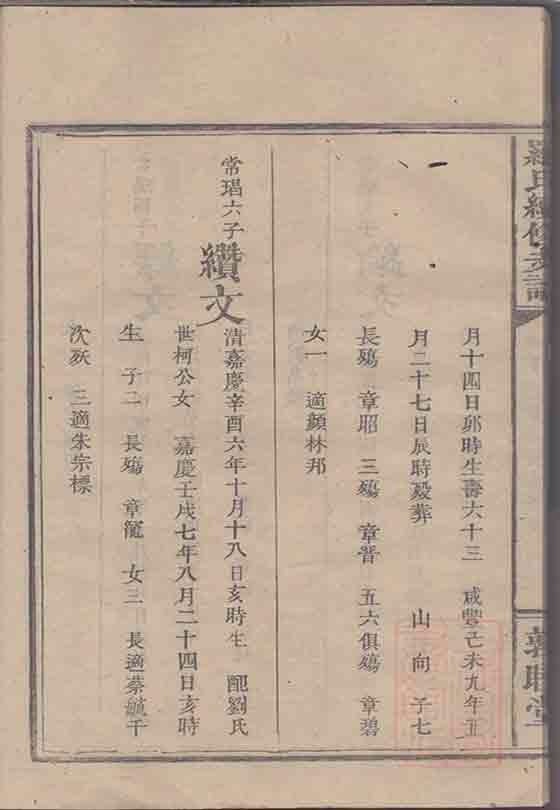 羅氏續修支譜
敦睦堂
月十四日卯時生壽六十三　咸豐己未九年五
月二十七日辰時歿葬　山　向　子七
長殤　章昭　三殤　章晋　五六俱殤　章碧
女一　適顏林邦
常琩六子
纘文
清嘉慶辛酉六年十月十八日亥時生　配劉氏
世柯公女　嘉慶壬戌七年八月二十四日亥時
生　子二　長殤　章寵　女三　長適蔡毓千
次殀　三適朱宗標